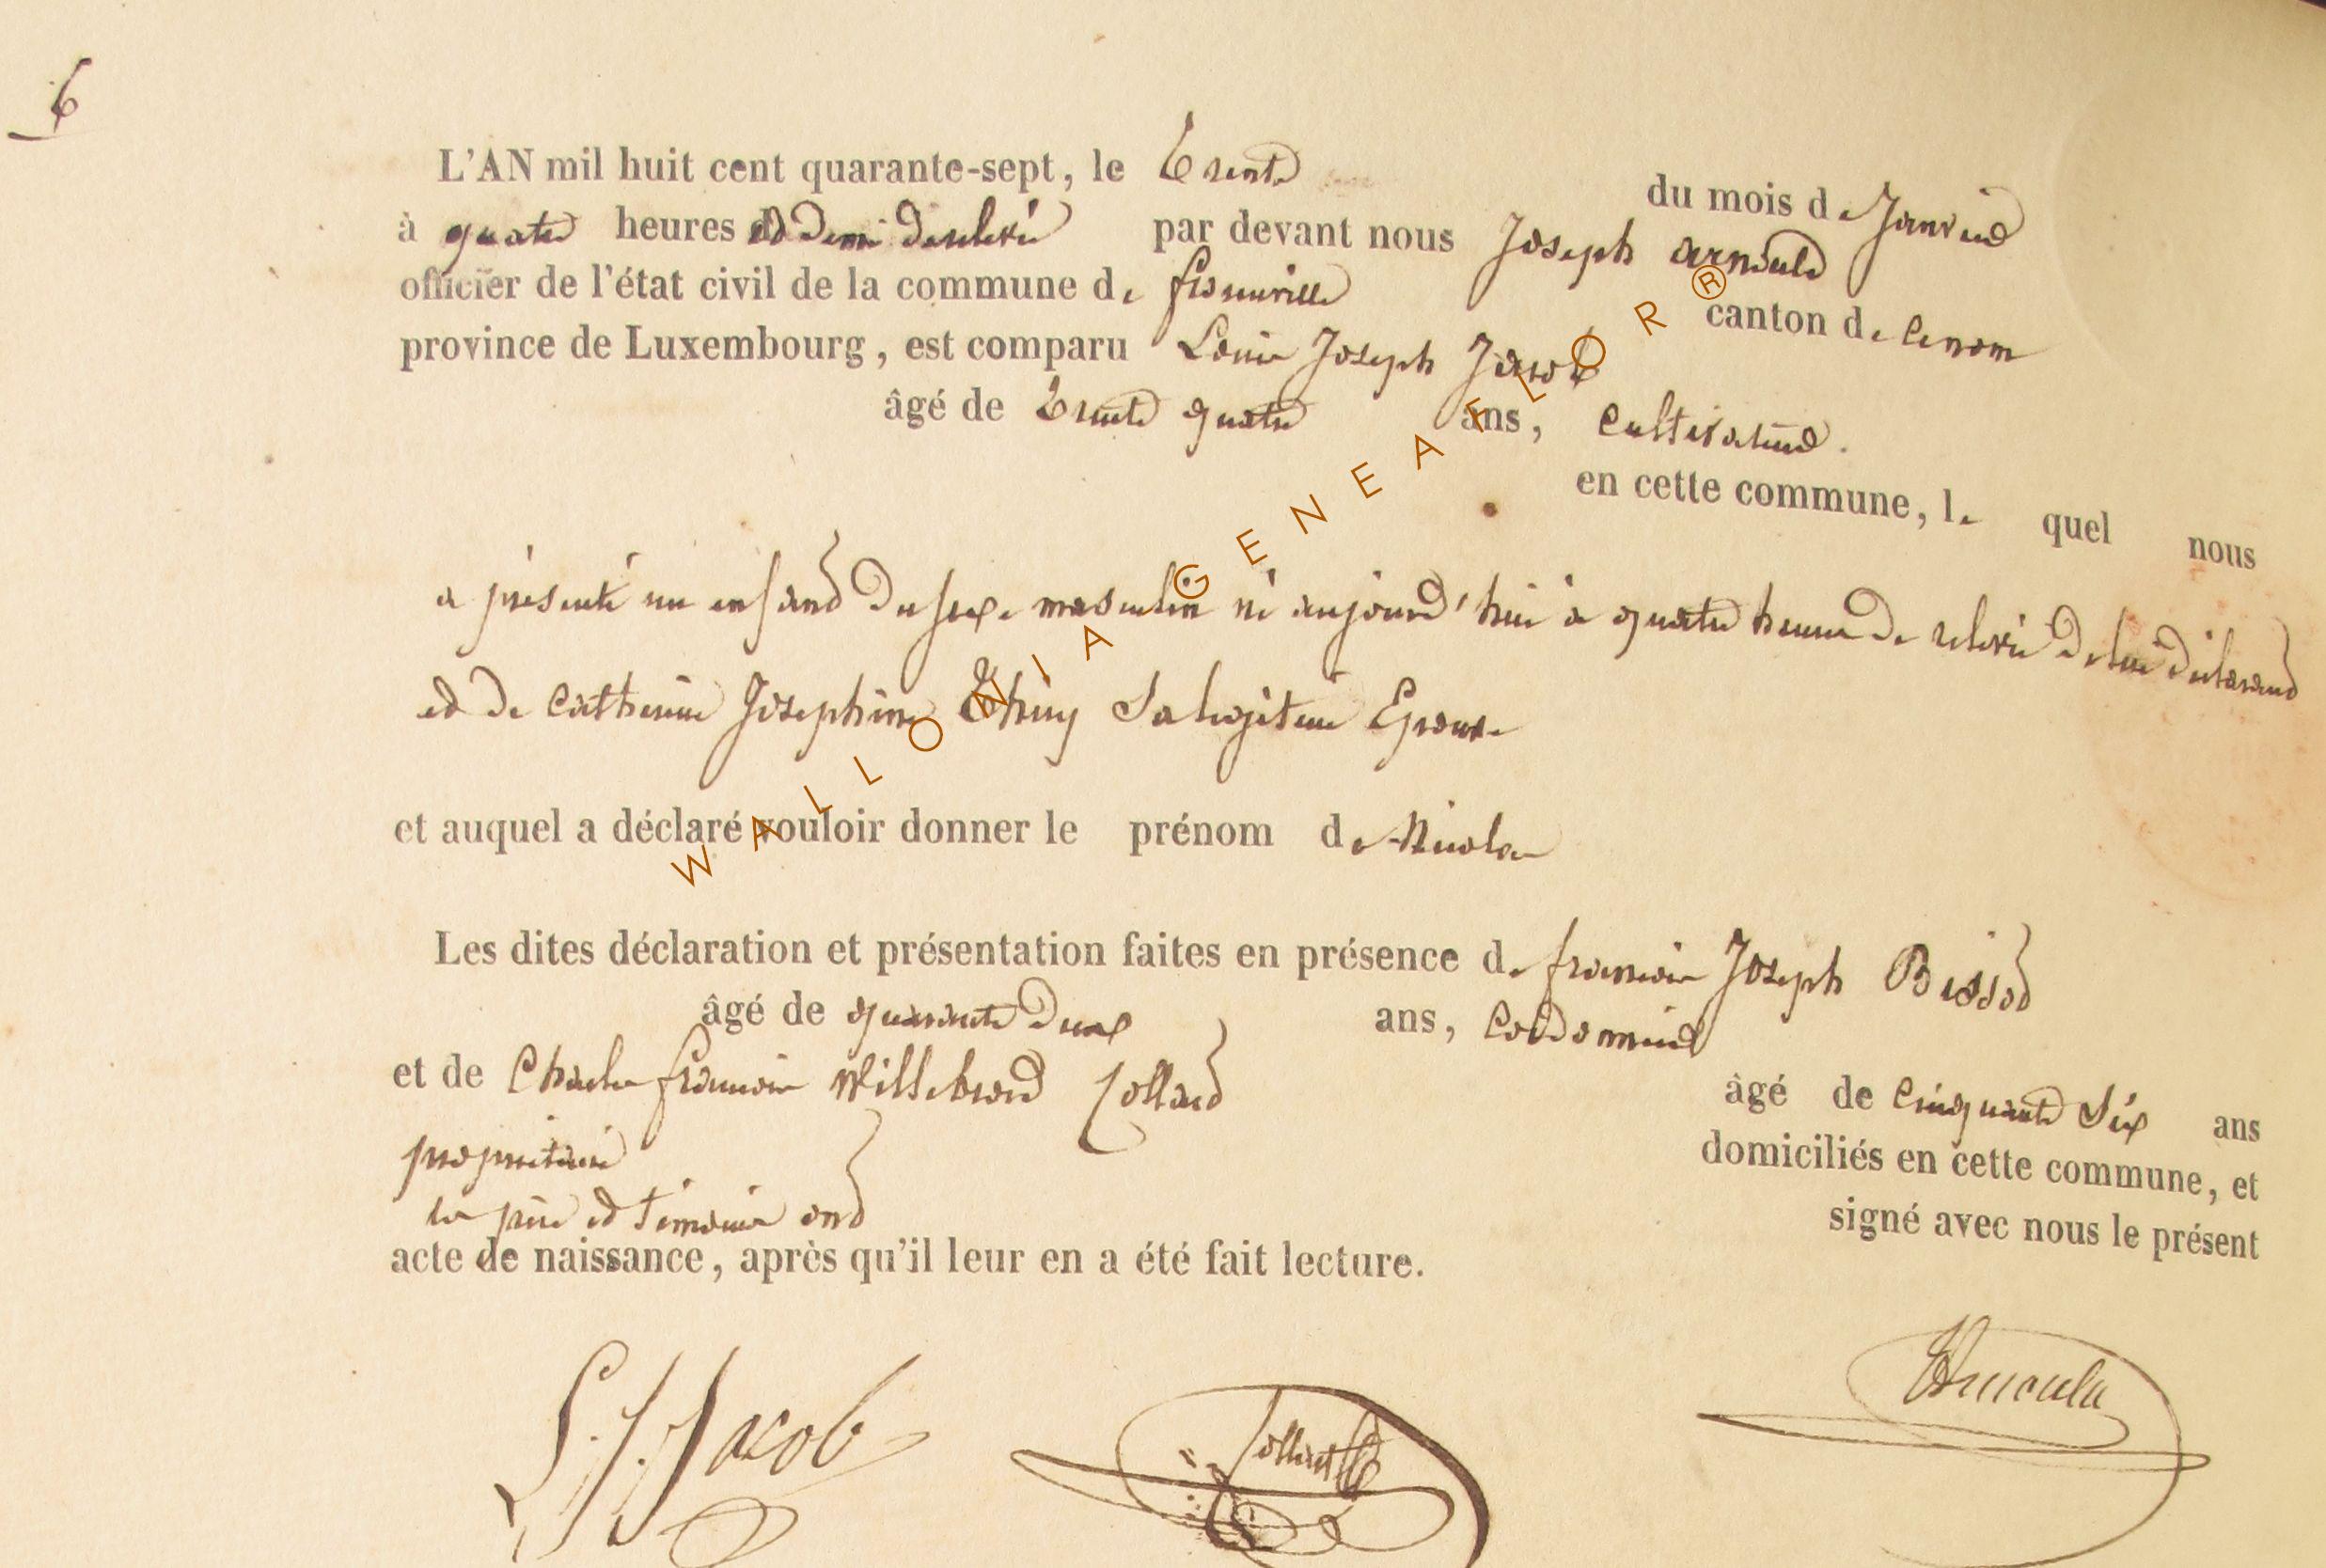 6
L'AN mil huit cent quarante-sept, le trente du mois de Janvier
à quatre heures et demi de relevée par devant nous Joseph arnould
officier de l'état civil de la commune de florenville canton de ce nom
province de Luxembourg, est comparu Louis Joseph Jacob
âgé de trente quatre ans, Cultivateur.
en cette commune, le quel nous
a présenté un enfant du sexe masculin né aujourd'hui à quatre heures de relevée de lui déclarant
et de Catherine Josephine Thiry Sa legitime Epouse
et auquel a déclaré vouloir donner le prénom de Nicolas
Les dites déclaration et présentation faites en présence de francois Joseph
âgé de quarante deux ans, Cordonnier
et de Charles francois Willebrord Collard âgé de Cinquante Six ans
proprietaire domiciliés en cette commune, et
les père et témoins ont signé avec nous le présent
acte de naissance, après qu'il leur en a été fait lecture.
L. J. Jacob Collard
WALLONIA GENEAFLOR ®